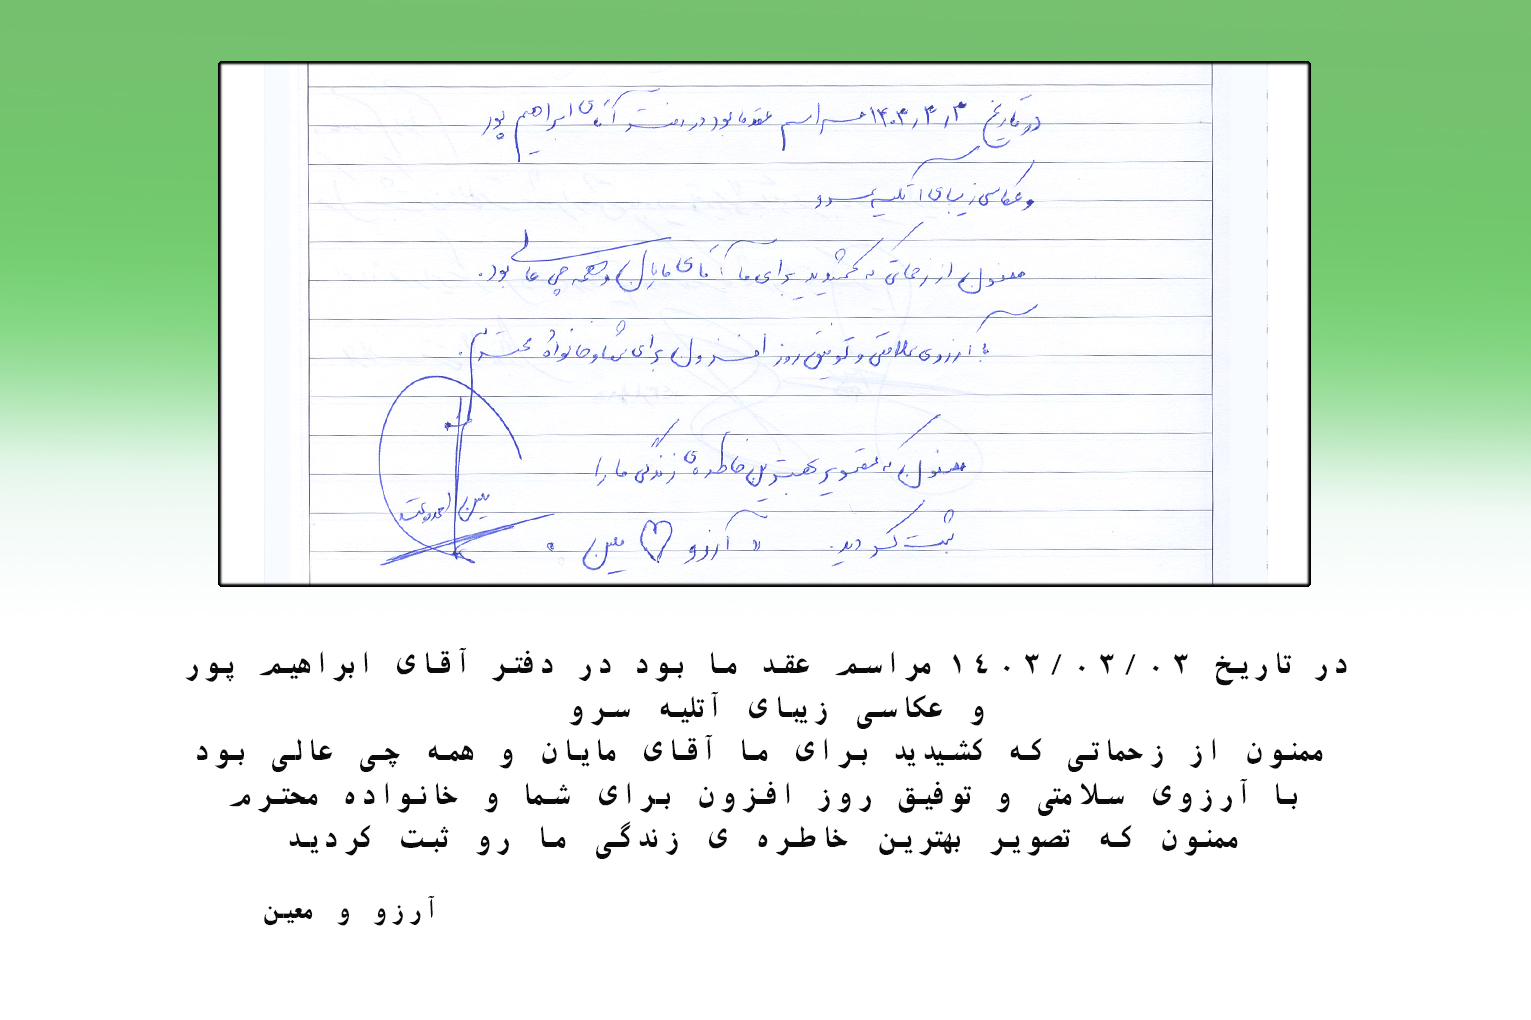 در تاریخ ۱۴۰۳٫۳٫۳ مراسم عقد ما بود در دفتر آقای ابراهیم پور
و عکاسی زیبای آتلیه سرو
ممنون از زحماتی که کشیدید برای ما آقای مایان و همه چی عالی بود.
با آرزوی سلامتی و توفیق روز افزون برای شما و خانواده محترم.
ممنون که تصویر بهترین خاطره‌ی زندگی ما را
ثبت کردید. " آرزو ♡ معین "
معین
در تاریخ ۱۴۰۳/۰۳/۰۳ مراسم عقد ما بود در دفتر آقای ابراهیم پور
و عکاسی زیبای آتلیه سرو
ممنون از زحماتی که کشیدید برای ما آقای مایان و همه چی عالی بود
با آرزوی سلامتی و توفیق روز افزون برای شما و خانواده محترم
ممنون که تصویر بهترین خاطره ی زندگی ما رو ثبت کردید
آرزو و معین